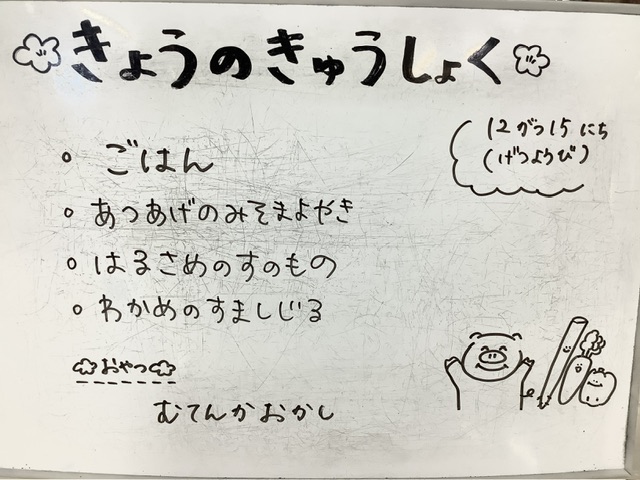 きょうのきゅうしょく
12がつ15にち
(げつようび)
ごはん
あつあげのみそまよやき
はるさめのすのもの
わかめのすましじる
おやつ
むてんかおかし